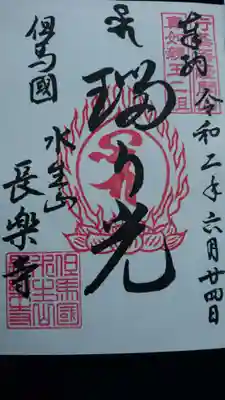 奉納
令和二年六月廿四日
瑠り光
但馬國
水生山
長樂寺
但馬國
水生山
長樂寺